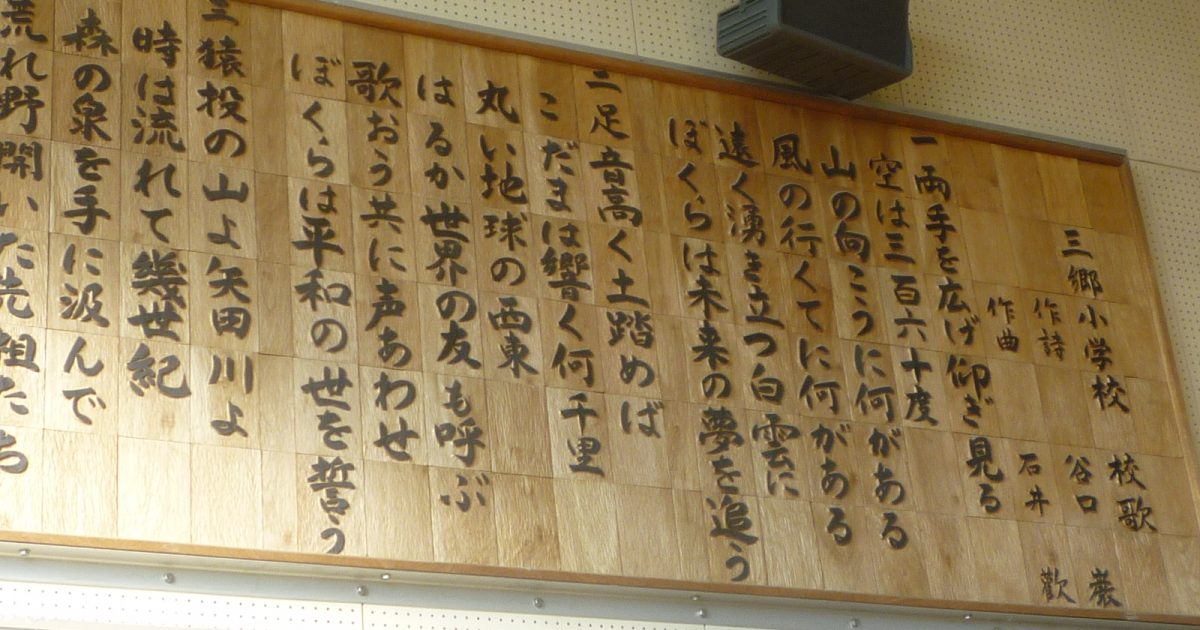 三郷小学校 校歌
作詩 谷口 巌
作曲 石井 歓
一 両手を広げ仰ぎ見る
空は三百六十度
山の向こうに何がある
風の行くてに何がある
遠く湧き立つ白雲に
ぼくらは未来の夢を追う
二 足音高く土踏めば
こだまは響く何千里
丸い地球の西東
はるか世界の友も呼ぶ
歌おう共に声あわせ
ぼくらは平和の世を誓う
三 猿投の山よ矢田川よ
時は流れて幾世紀
森の泉を手に汲んで
荒れ野開いた先祖たち